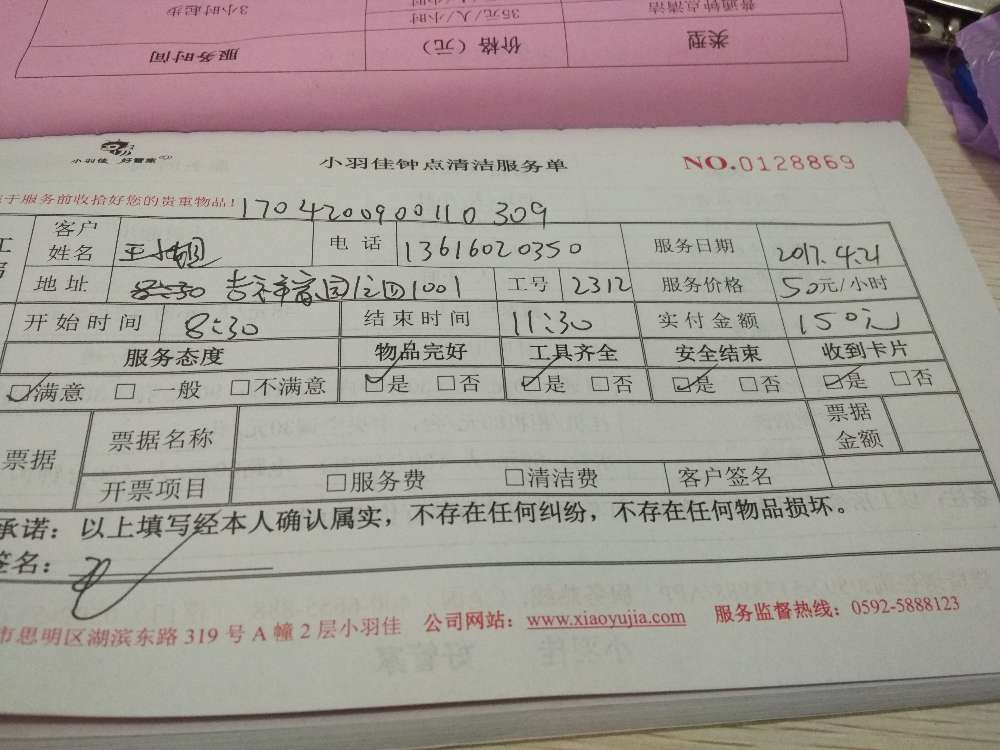 3小时起步 35元/人/小时 普通钟点清洁
服务时间 价格（元） 类型
小羽佳 好管家
小羽佳钟点清洁服务单 NO.0128869
于服务前收拾好您的贵重物品！ 1704200900110309
客户姓名 电话 13616020350 服务日期 2017.4.21
地址 1001 工号 2312 服务价格 50元/小时
开始时间 8:30 结束时间 11:30 实付金额 150元
服务态度 物品完好 工具齐全 安全结束 收到卡片
☑满意 □一般 □不满意 ☑是 □否 ☑是 □否 ☑是 □否 ☑是 □否
票据 票据名称 票据金额
开票项目 □服务费 □清洁费 客户签名
承诺：以上填写经本人确认属实，不存在任何纠纷，不存在任何物品损坏。
签名：
市思明区湖滨东路 319 号 A 幢 2 层小羽佳 公司网站：www.xiaoyujia.com 服务监督热线：0592-5888123